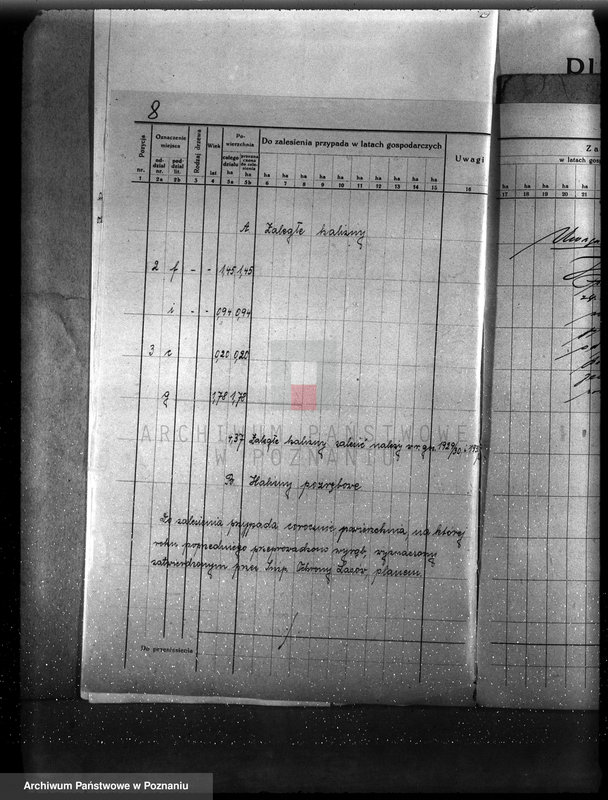 8
DI
Pozycja
Oznaczenie miejsca
Rodzaj drzewa
Wiek
Powierzchnia
Do zalesienia przypada w latach gospodarczych
Uwagi
od-dział nr.
pod-dział lit.
całego działu
nr.
lat
ha ha ha ha ha ha ha ha ha ha ha ha
1 2a 2b 3 4 5a 5b 6 7 8 9 10 11 12 13 14 15 16
Za
w latach gosp
ha ha ha ha ha
17 18 19 20 21
A Zaległe halizny
2 f - - 1,45 1,45
i - - 0,94 0,94
3 c 0,20 0,20
g 1,78 1,78
4,37 Zaległe halizny zalesić należy w r. gp. 1929/30 i
B Halizny pozrębowe
Do zalesienia przypada corocznie powierzchnia na której
roku poprzedniego przeprowadzono wyrąb, wyznaczony
zatwierdzonym przez Insp. Ochrony Lasów, planem.
Do przeniesienia
ARCHIWUM PAŃSTWOWE
W POZNANIU
Archiwum Państwowe w Poznaniu